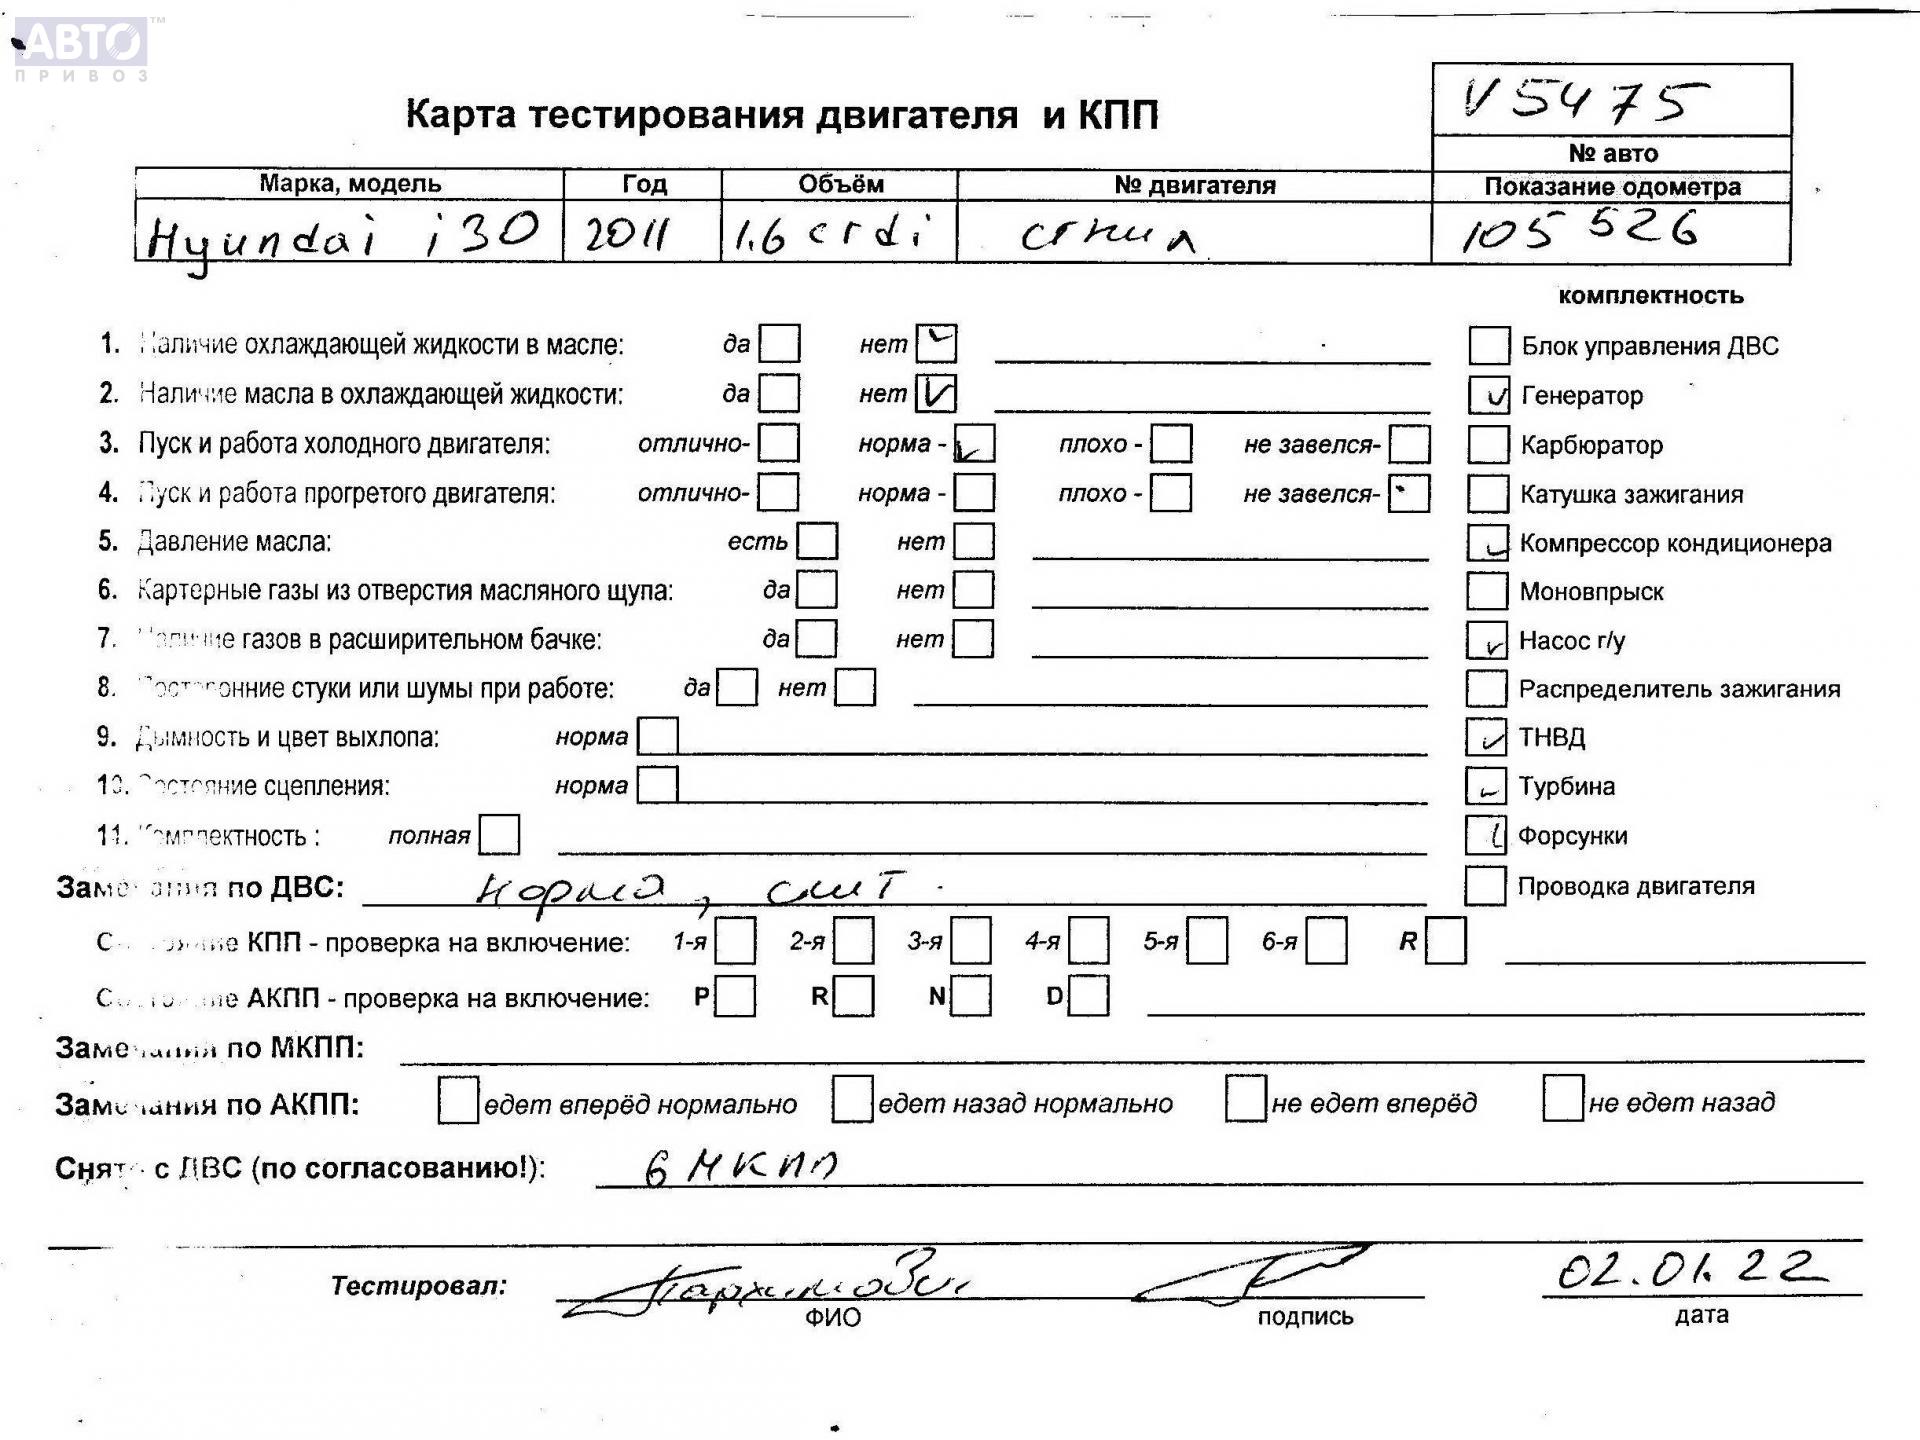 АВТО™
ПРИВОЗ
V5475
Карта тестирования двигателя и КПП
№ авто
Марка, модель Год Объём № двигателя Показание одометра
Hyundai i30 2011 1.6 crdi сгнил 105 526
комплектность
1. Наличие охлаждающей жидкости в масле: да нет Блок управления ДВС
2. Наличие масла в охлаждающей жидкости: да нет Генератор
3. Пуск и работа холодного двигателя: отлично- норма - плохо - не завелся- Карбюратор
4. Пуск и работа прогретого двигателя: отлично- норма - плохо - не завелся- Катушка зажигания
5. Давление масла: есть нет Компрессор кондиционера
6. Картерные газы из отверстия масляного щупа: да нет Моновпрыск
7. Наличие газов в расширительном бачке: да нет Насос г/у
8. Посторонние стуки или шумы при работе: да нет Распределитель зажигания
9. Дымность и цвет выхлопа: норма ТНВД
10. Состояние сцепления: норма Турбина
11. Комплектность : полная Форсунки
Замечания по ДВС: норма, Проводка двигателя
Состояние КПП - проверка на включение: 1-я 2-я 3-я 4-я 5-я 6-я R
Состояние АКПП - проверка на включение: P R N D
Замечания по МКПП:
Замечания по АКПП: едет вперёд нормально едет назад нормально не едет вперёд не едет назад
Снято с ДВС (по согласованию!): 6 МКПП
Тестировал: 02.01.22
ФИО подпись дата